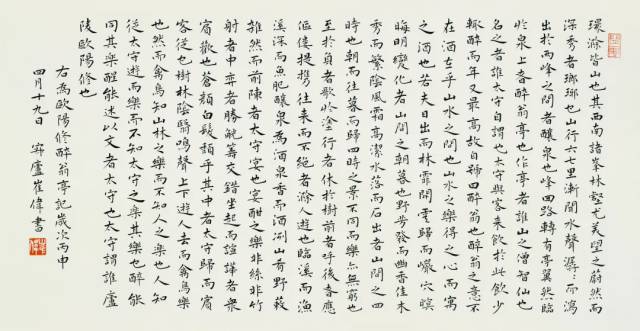 環滁皆山也其西南諸峯林壑尤美望之蔚然而
深秀者瑯琊也山行六七里漸聞水聲潺潺而瀉
出於兩峰之間者釀泉也峰回路轉有亭翼然臨
於泉上者醉翁亭也作亭者誰山之僧智仙也
名之者誰太守自謂也太守與客來飲於此飲少
輒醉而年又最高故自號曰醉翁也醉翁之意不
在酒在乎山水之間也山水之樂得之心而寓
之酒也若夫日出而林霏開雲歸而巖穴暝
晦明變化者山間之朝暮也野芳發而幽香佳木
秀而繁陰風霜高潔水落而石出者山間之四
時也朝而往暮而歸四時之景不同而樂亦無窮也
至於負者歌於塗行者休於樹前者呼後者應
傴僂提攜往來而不絕者滁人遊也臨溪而漁
溪深而魚肥釀泉為酒泉香而酒洌山肴野蔌
雜然而前陳者太守宴也宴酣之樂非絲非竹
射者中弈者勝觥籌交錯坐起而諠譁者衆
賓歡也蒼顏白髮頹乎其中者太守歸而賓
客從也樹林陰翳鳴聲上下遊人去而禽鳥樂
也然而禽鳥知山林之樂而不知人之樂也人知
從太守遊而樂而不知太守之樂其樂也醉能
同其樂醒能述以文者太守也太守謂誰廬
陵歐陽修也
右為歐陽修醉翁亭記歲次丙申
四月十九日 廬崔偉書